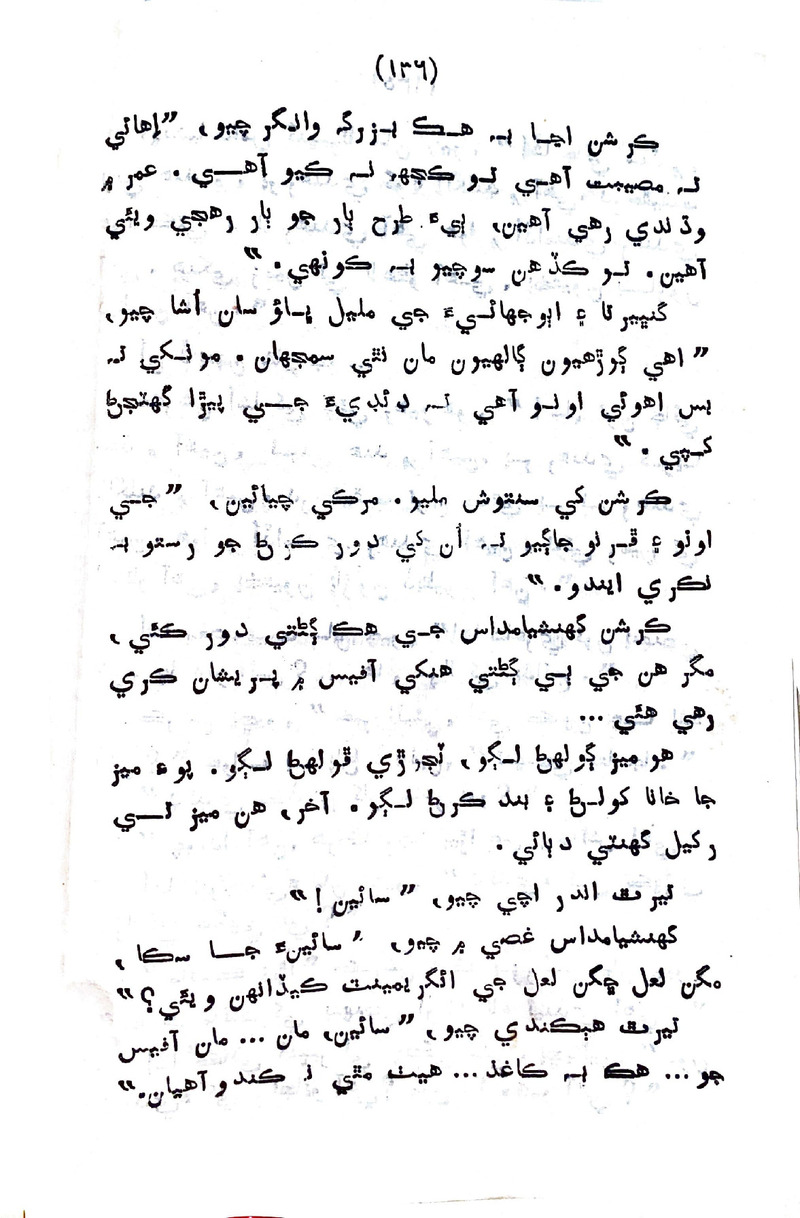 (۱۳۶)
ڪرشن اڃا بہ هڪ بزرگہ وانگر چيو، ”اِهائي
تہ مصيبت آهي تو ڪجهہ نہ ڪيو آهي. عمر ۾
وڌندي رهي آهين، ٻيءَ طرح ٻار جو ٻار رهجي ويئي
آهين. تو ڪڏهن سوچيو بہ ڪونهي.“
گنڀيرتا ۽ اٻوجهائيءَ جي مليل ڀاؤ سان اُشا چيو،
”اهي ڳوڙهيون ڳالهيون مان نٿي سمجهان. مونکي تہ
بس اهوئي اونو آهي تہ ڊئڊيءَ جي پيڙا گهٽجڻ
کپي.“
ڪرشن کي سنتوش مليو. مرڪي چيائين، ”جي
اونو ۽ ڦرنو جاڳيو تہ اُن کي دور ڪرڻ جو رستو بہ
نڪري ايندو.“
ڪرشن گهنشيامداس جي هڪ ڳڻتي دور ڪئي،
مگر هن جي ٻي ڳڻتي هنکي آفيس ۾ پريشان ڪري
رهي هئي...
هو ميز ڳولهڻ لڳو، تجوڙي ڦولهڻ لڳو. پوءِ ميز
جا خانا کولڻ ۽ بند ڪرڻ لڳو. آخر، هن ميز تي
رکيل گهنٽي دٻائي.
تيرٿ اندر اچي چيو، ”سائين!“
گهنشيامداس غصي ۾ چيو، ”سائينءَ جا سڪا،
مگن لعل ڇگن لعل جي ائگريمينٽ ڪيڏانهن ويئي؟“
تيرٿ هٻڪندي چيو، ”سائين، مان... مان آفيس
جو... هڪ بہ ڪاغذ... هيٺ مٿي نہ ڪندو آهيان.“